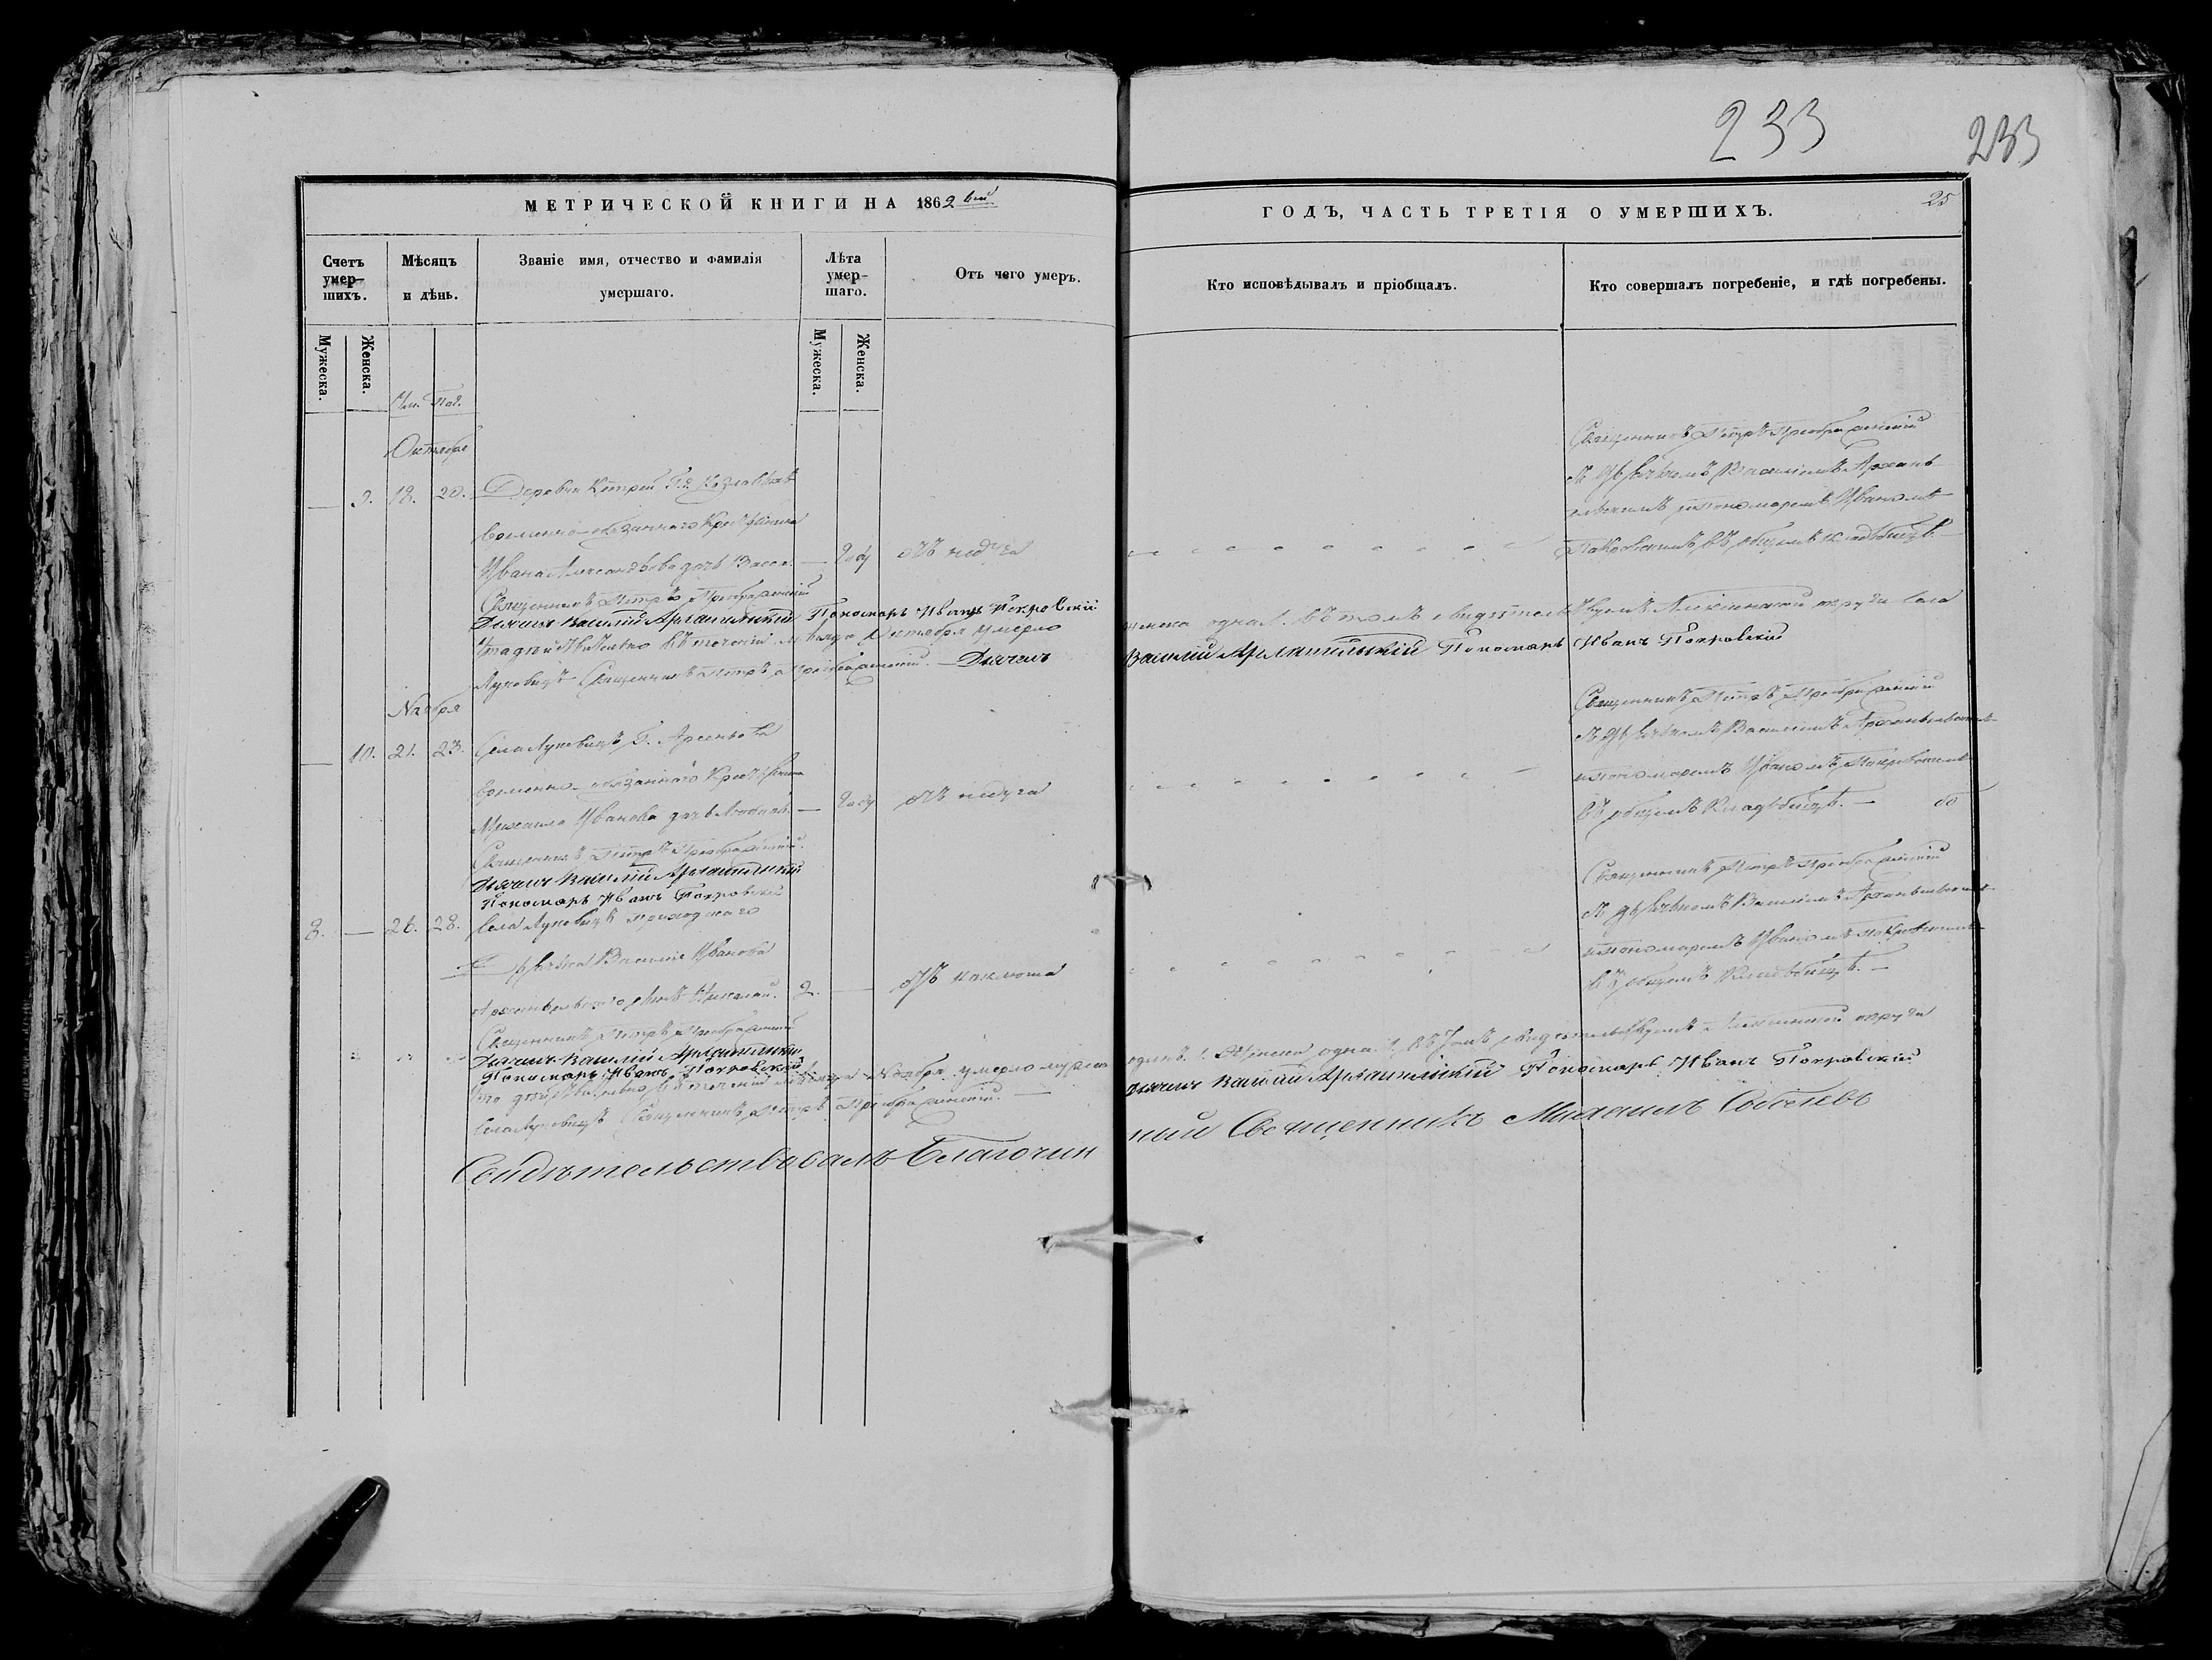 233
233
МЕТРИЧЕСКОЙ КНИГИ НА 1862 вой.
ГОДЪ, ЧАСТЬ ТРЕТІЯ О УМЕРШИХЪ.
25
Счетъ умер-шихъ.
Мѣсяцъ и день.
Званіе имя, отчество и фамилія умершаго.
Лѣта умер-шаго.
Отъ чего умеръ.
Кто исповѣдывалъ и пріобщалъ.
Кто совершалъ погребеніе, и гдѣ погребены.
Мужеска.
Женска.
Мужеска.
Женска.
Ум. Пог.
Октября
9. 18. 20. Деревни
временно-обязаннаго Крестьянина
Ивана Александрова дочь Васса. — 1 году отъ недуга
Священникъ Петръ Преображенскій
съ Дьячкомъ Василіемъ Архан-
гельскимъ и пономаремъ Иваномъ
Покровскимъ въ общемъ кладбищѣ.
Священникъ Петръ Преображенскій
Дьячекъ Василій Архангельскій Пономарь Иванъ Покровскій
въ теченіи мѣсяца Октября умерло женска одна 1. Въ томъ свидѣтельствуемъ Алексинской округи села
Луковицъ Священникъ Петръ Преображенскій. — Дьячекъ Василій Архангельскій Пономарь Иванъ Покровскій
Ноября
10. 21. 23. Села Луковицъ Г. Арсеньева
временно-обязаннаго Крестьянина
Михаила Иванова дочь — 1 году отъ недуга
Священникъ Петръ Преображенскій
съ Дьячкомъ Василіемъ Архангельскимъ
и пономаремъ Иваномъ Покровскимъ
въ общемъ Кладбищѣ. —
Священникъ Петръ Преображенскій.
Дьячекъ Василій Архангельскій
Пономарь Иванъ Покровскій
8. — 26. 28. Села Луковицъ приходскаго
Дьячка Василія Иванова
Архангельскаго сынъ Николай. 2. — отъ
Священникъ Петръ Преображенскій
съ Дьячкомъ Василіемъ Архангельскимъ
и пономаремъ Иваномъ Покровскимъ
въ общемъ Кладбищѣ. —
Священникъ Петръ Преображенскій
Дьячекъ Василій Архангельскій
Пономарь Иванъ Покровскій
въ теченіи мѣсяца Ноября умерло мужеска одинъ 1. Женска одна 1, въ томъ свидѣтельствуемъ Алексинской округи
Села Луковицъ Священникъ Петръ Преображенскій. — Дьячекъ Василій Архангельскій Пономарь Иванъ Покровскій
Свидѣтельствовалъ Благочинный Священникъ Михаилъ Соболевъ